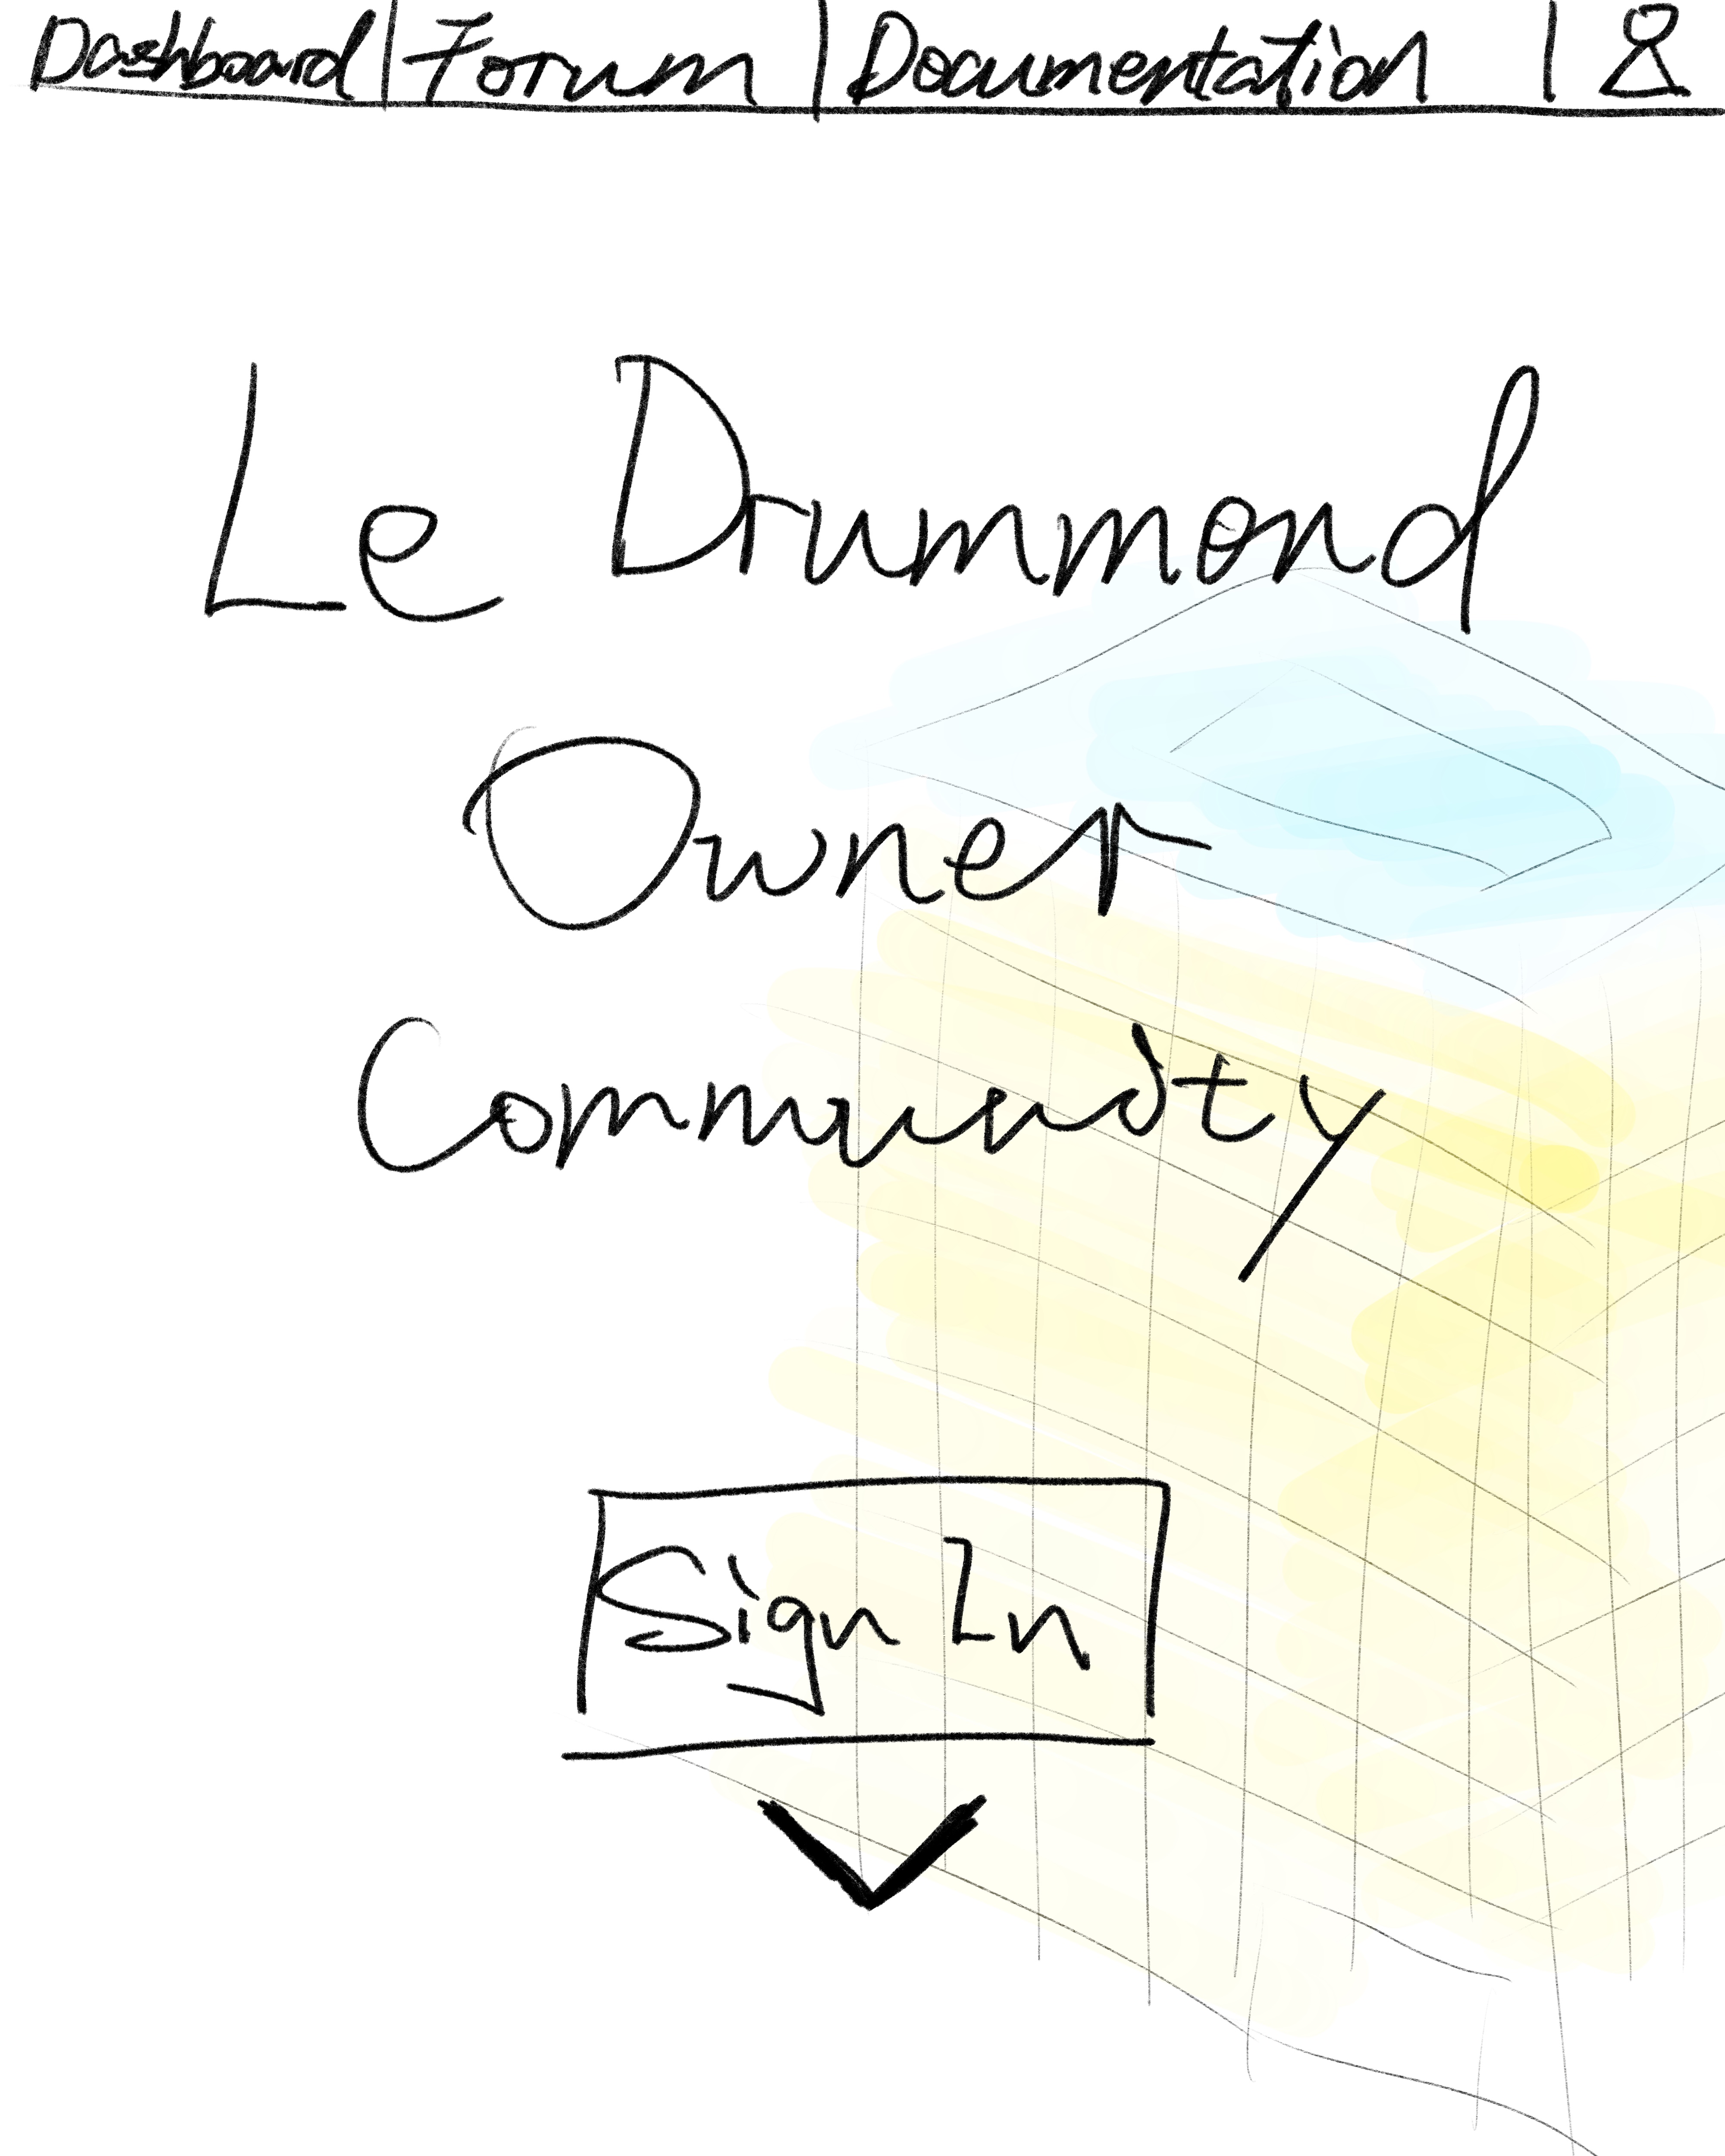 Dashboard | Forum | Documentation |
Le Drummond
Owner
Community
Sign In